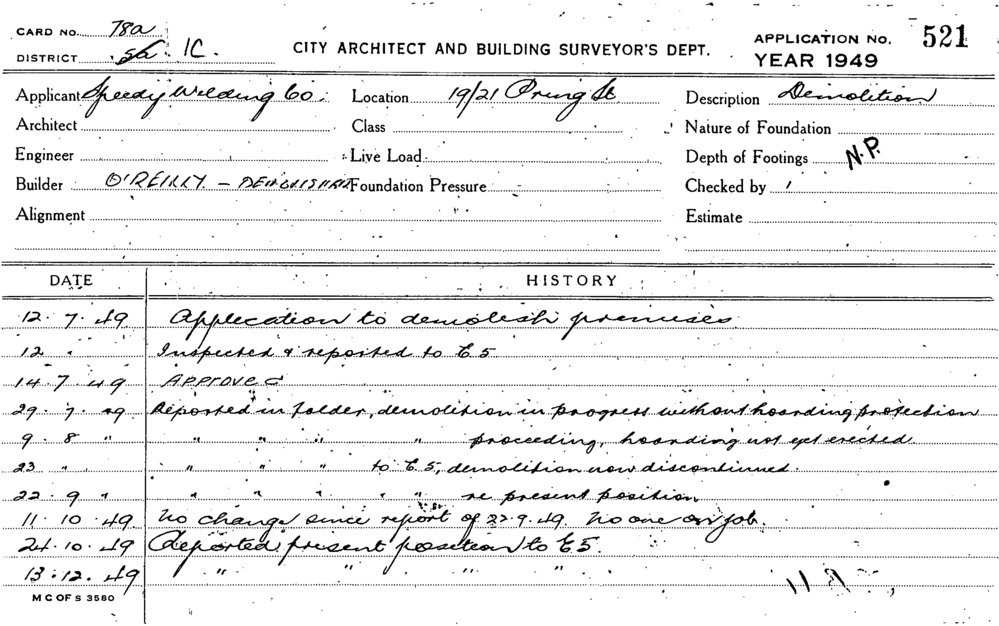 CARD NO. 78a
DISTRICT 1C.
CITY ARCHITECT AND BUILDING SURVEYOR'S DEPT.
APPLICATION NO. 521
YEAR 1949
Applicant Speedy Welding Co. Location 19/21 Pring St Description Demolition
Architect Class Nature of Foundation
Engineer Live Load Depth of Footings N.P.
Builder O'REILLY - Foundation Pressure Checked by
Alignment Estimate
DATE HISTORY
12.7.49 Application to demolish premises
12 " Inspected & reported to E5
14.7.49 APPROVED
29.7.49 Reported in folder, demolition in progress without hoarding protection
9.8 " " " " " proceeding, hoarding not yet erected
23 " " " " to E.5, demolition now discontinued.
22.9 " " " " " " re present position
11.10.49 No change since report of 22.9.49. No one on job.
24.10.49 Reported present position to E5.
13.12.49 " " " "
M C OF S 3580